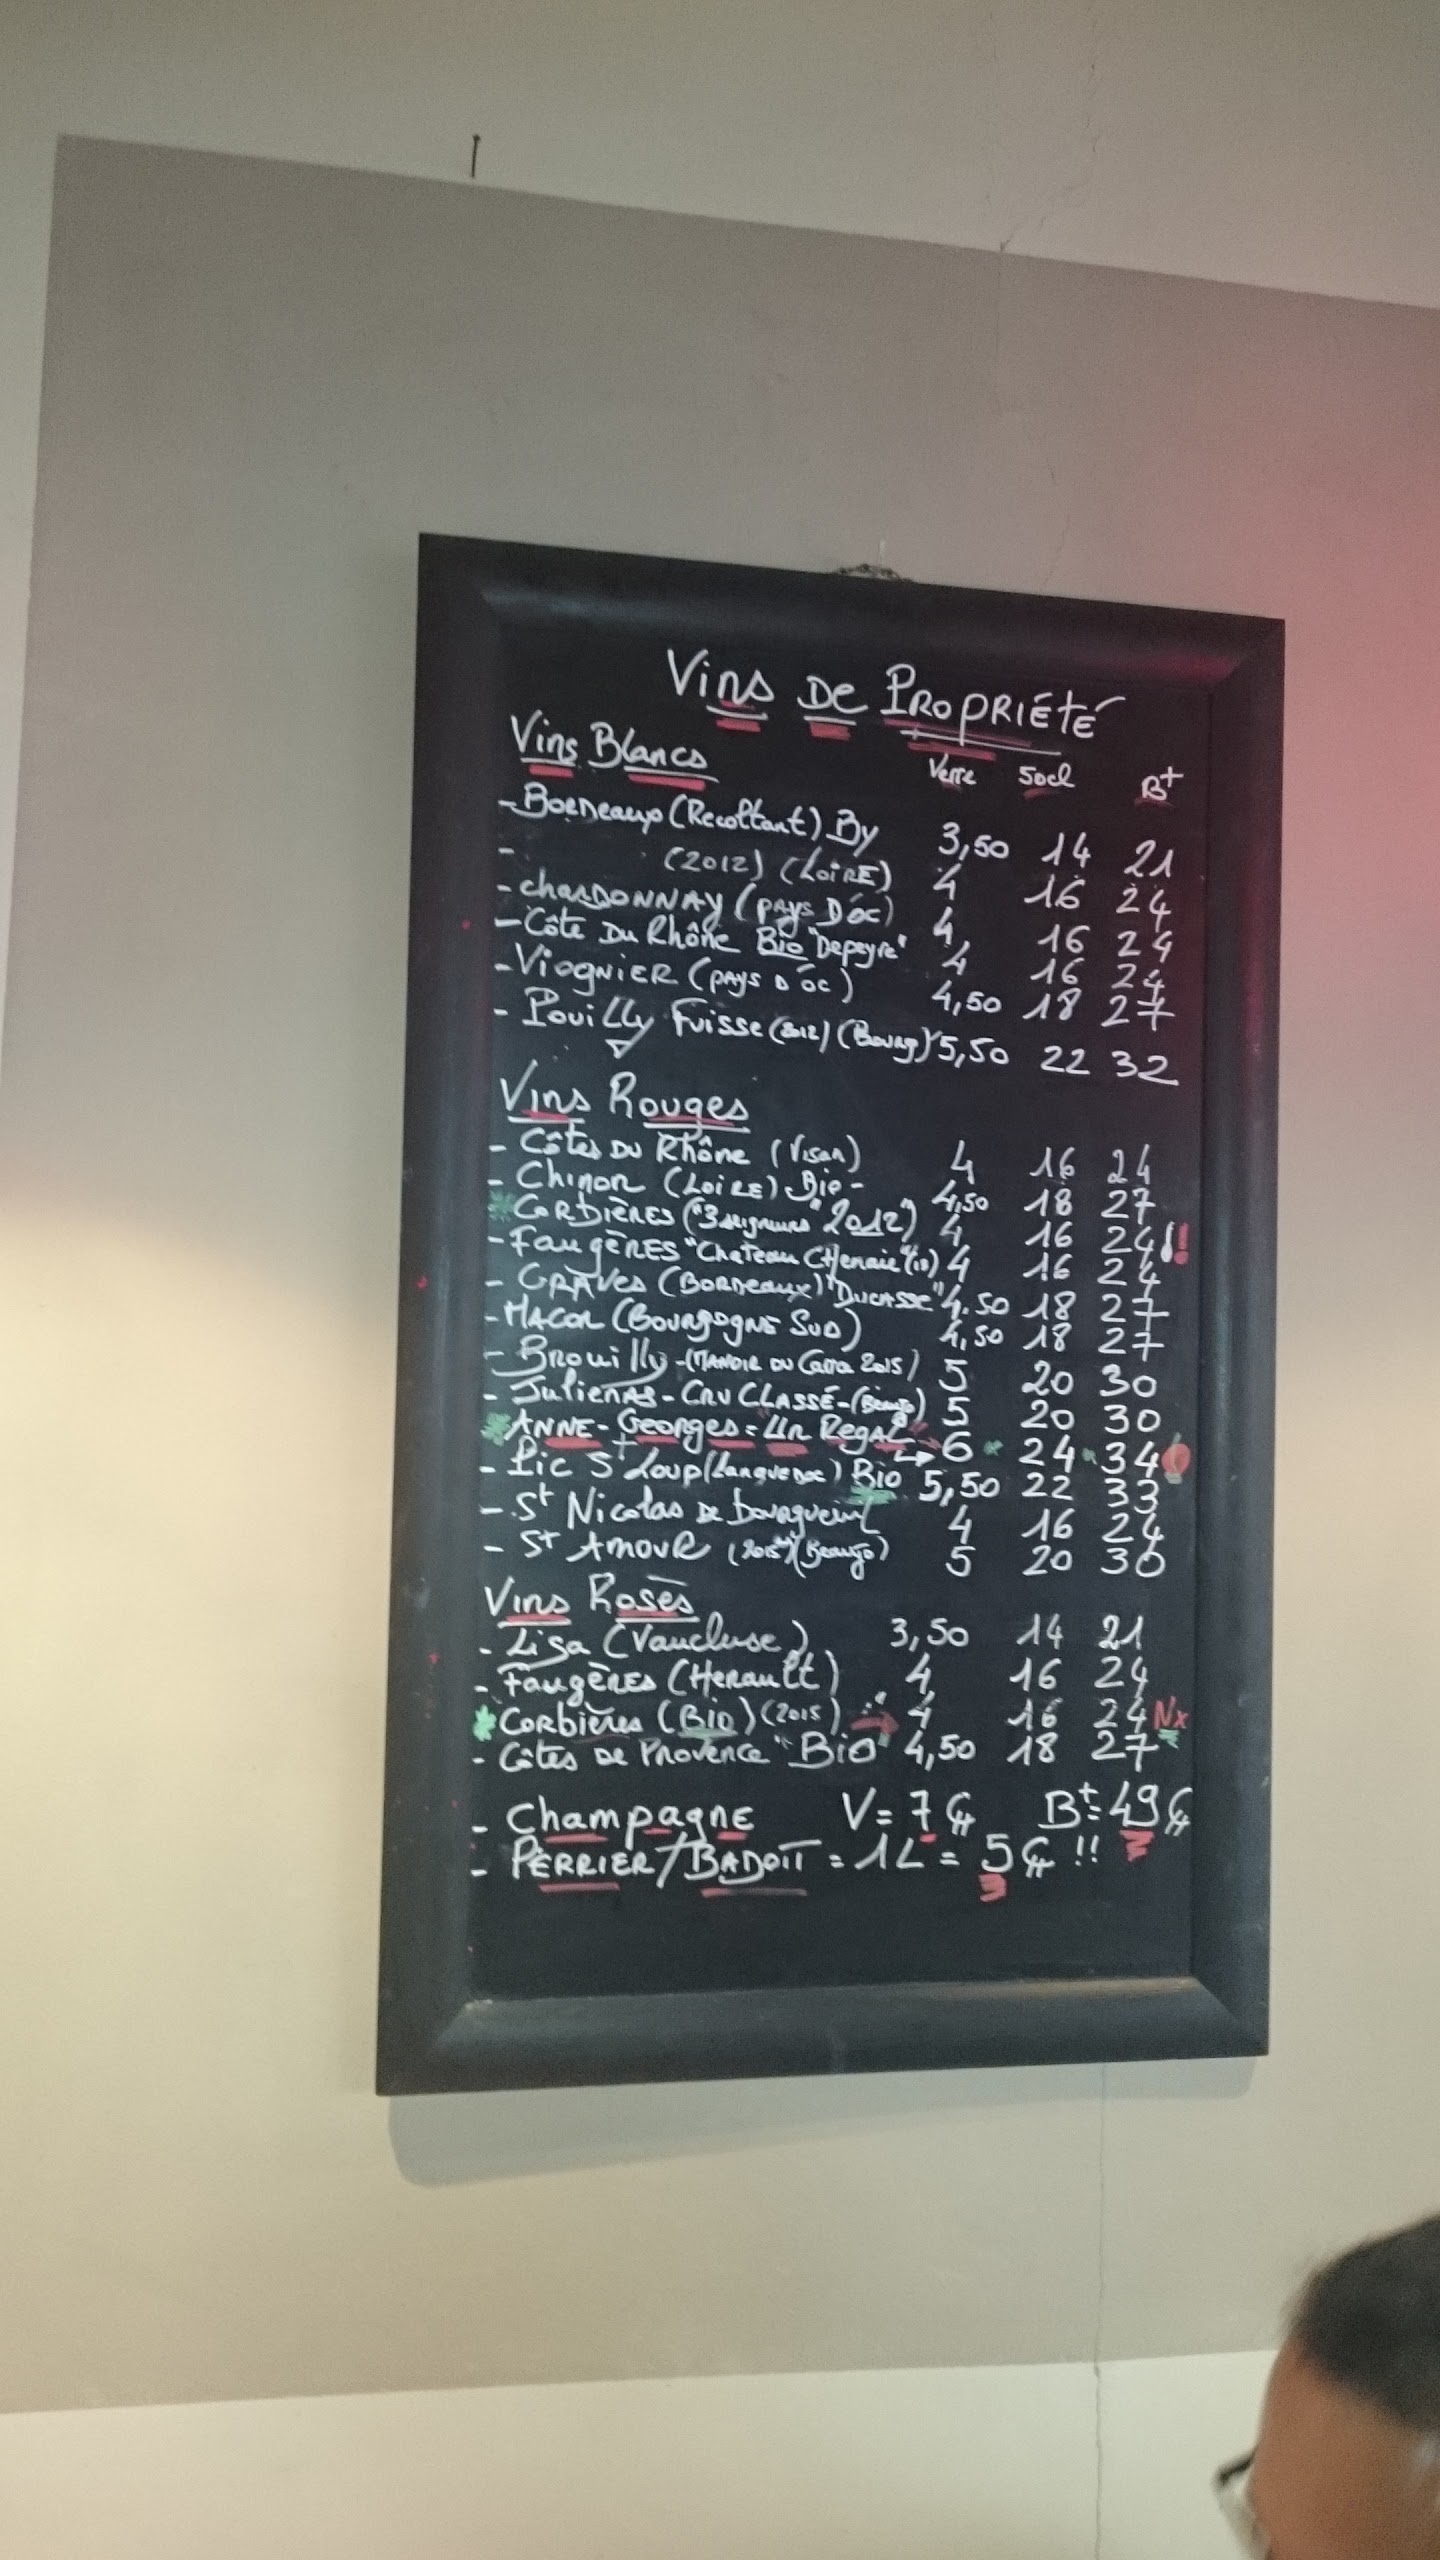 Vins De Propriété
Vins Blancs Verre 50cl Bt
- Bordeaux (Recoltant) By 3,50 14 21
- (2012) (Loire) 4 16 24
- Chardonnay (Pays D'Oc) 4 16 24
- Côte Du Rhône Bio "Depeyre" 4 16 24
- Viognier (Pays D'Oc) 4,50 18 27
- Pouilly Fuisse (2012) (Bourg) 5,50 22 32
Vins Rouges
- Côtes Du Rhône (Visan) 4 16 24
- Chinon (Loire) Bio - 4,50 18 27
Corbières ("3 seigneurs" 2012") 4 16 24 !!
- Faugères "Chateau Chenaie" 4 16 24
- Graves (Bordeaux) "Ducasse" 4.50 18 27
- Macon (Bourgogne Sud) 4,50 18 27
- Brouilly - (Manoir du Carra 2015) 5 20 30
- Julienas - Cru Classé - (Beaujo) 5 20 30
Anne-Georges = Un Regal 6 24 34
- Pic St Loup (Languedoc) Bio 5,50 22 33
- St Nicolas De bourgueuil 4 16 24
- St Amour (2015) (Beaujo) 5 20 30
Vins Rosès
- Lisa (Vaucluse) 3,50 14 21
- Faugères (Herault) 4 16 24
Corbières (Bio) (2015) 4 16 24 Nx
- Côtes de Provence "Bio" 4,50 18 27
- Champagne V = 7 € Bt = 49 €
- Perrier/Badoit = 1L = 5 € !!